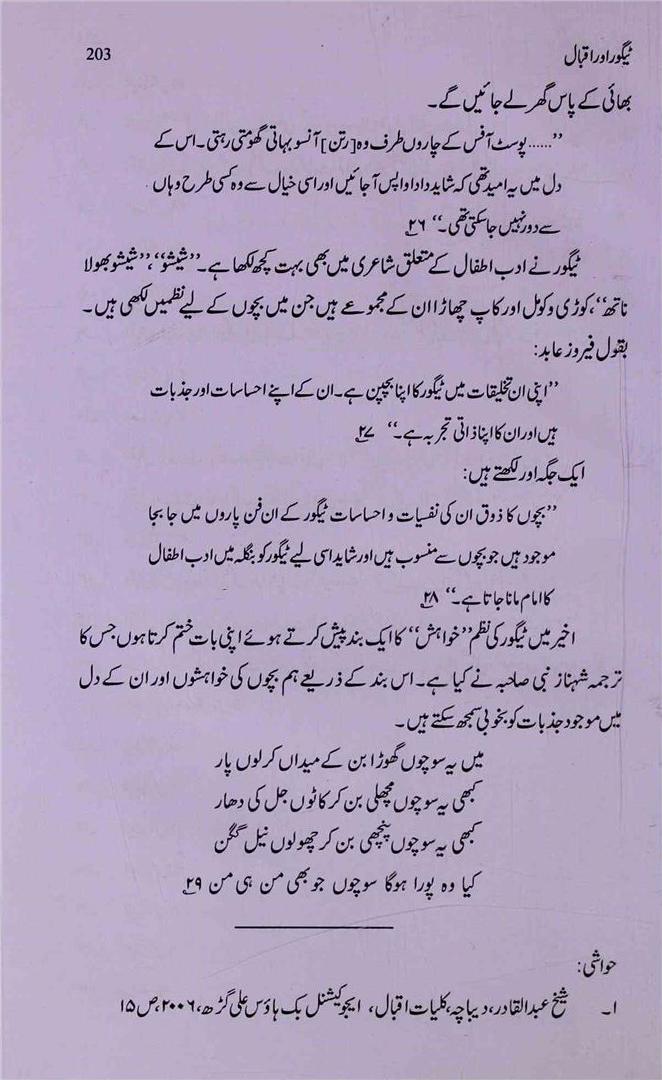 ٹیگور اور اقبال 203
بھائی کے پاس گھر لے جائیں گے۔
’’......پوسٹ آفس کے چاروں طرف وہ [رتن] آنسو بہاتی گھومتی رہتی۔ اس کے
دل میں یہ امید تھی کہ شاید دادا واپس آجائیں اور اسی خیال سے وہ کسی طرح وہاں
سے دور نہیں جاسکتی تھی۔‘‘ ۲۶
ٹیگور نے ادب اطفال کے متعلق شاعری میں بھی بہت کچھ لکھا ہے۔ ’’شیشو‘‘، ’’شیشو بھولا
ناتھ‘‘، کوڑی وکومل اور کاپ چھاڑا ان کے مجموعے ہیں جن میں بچوں کے لیے نظمیں لکھی ہیں۔
بقول فیروز عابد:
’’اپنی ان تخلیقات میں ٹیگور کا اپنا بچپن ہے۔ ان کے اپنے احساسات اور جذبات
ہیں اور ان کا اپنا ذاتی تجربہ ہے۔‘‘ ۲۷
ایک جگہ اور لکھتے ہیں:
’’بچوں کا ذوق ان کی نفسیات و احساسات ٹیگور کے ان فن پاروں میں جا بجا
موجود ہیں جو بچوں سے منسوب ہیں اور شاید اسی لیے ٹیگور کو بنگلہ میں ادب اطفال
کا امام مانا جاتا ہے۔‘‘ ۲۸
اخیر میں ٹیگور کی نظم ’’خواہش‘‘ کا ایک بند پیش کرتے ہوئے اپنی بات ختم کرتا ہوں جس کا
ترجمہ شہناز نبی صاحبہ نے کیا ہے۔ اس بند کے ذریعے ہم بچوں کی خواہشوں اور ان کے دل
میں موجود جذبات کو بخوبی سمجھ سکتے ہیں۔
میں یہ سوچوں گھوڑا بن کے میداں کرلوں پار
کبھی یہ سوچوں مچھلی بن کر کاٹوں جل کی دھار
کبھی یہ سوچوں پنچھی بن کر چھولوں نیل گگن
کیا وہ پورا ہوگا سوچوں جو بھی من ہی من ۲۹
حواشی:
۱۔ شیخ عبدالقادر، دیباچہ، کلیات اقبال، ایجوکیشنل بک ہاؤس علی گڑھ، ۲۰۰۶، ص ۱۵